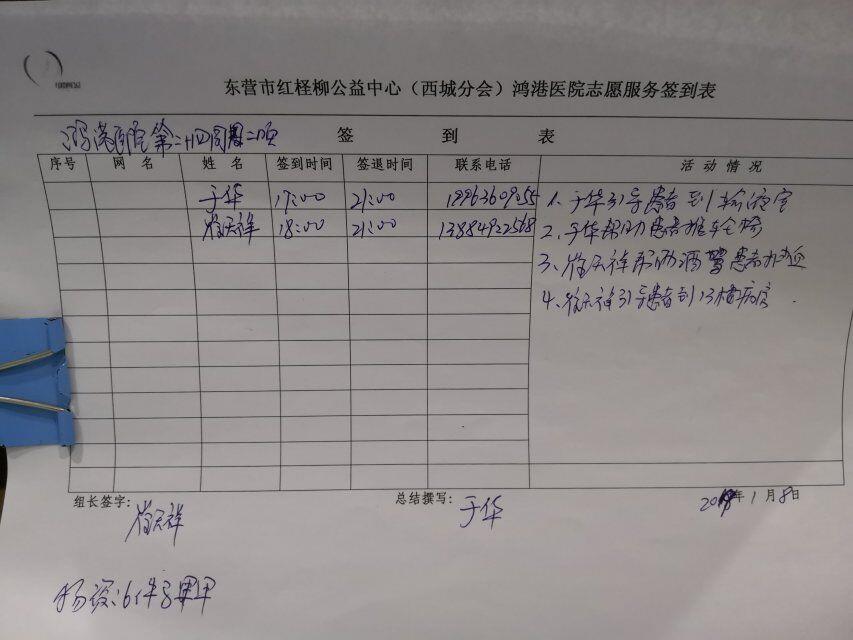 东营市红柽柳公益中心（西城分会）鸿港医院志愿服务签到表
鸿港医院第二十四周周二项 签 到 表
序号 网 名 姓 名 签到时间 签退时间 联系电话 活 动 情 况
于华 17:00 21:00 19963609255 1、于华引导患者到输液室
崔天祥 18:00 21:00 13884922568 2、于华帮助患者推轮椅
3、崔天祥帮助酒驾患者办
4、崔天祥引导患者到13楼病房.
组长签字: 总结撰写: 年1月8日
崔天祥 于华
6件马甲